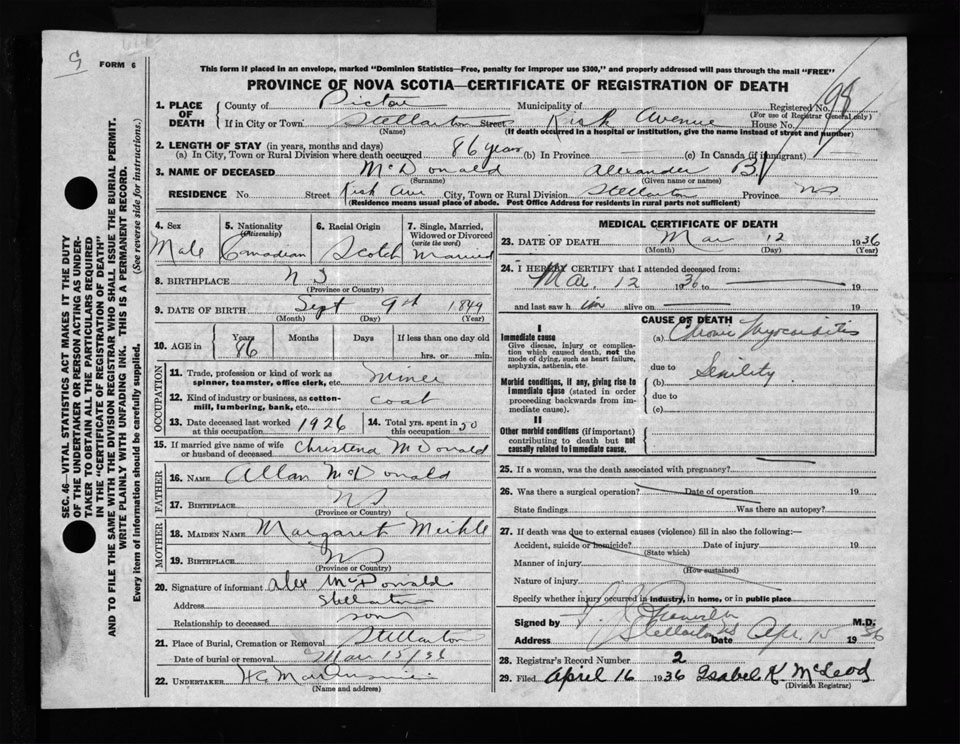 FORM 6
This form if placed in an envelope, marked "Dominion Statistics—Free, penalty for improper use $300," and properly addressed will pass through the mail "FREE"
PROVINCE OF NOVA SCOTIA—CERTIFICATE OF REGISTRATION OF DEATH
1. PLACE OF DEATH County of Pictou Municipality of Registered No. 98
(For use of Registrar General only)
If in City or Town Stellarton Street Avenue House No.
(Name) (If death occurred in a hospital or institution, give the name instead of street and number)
2. LENGTH OF STAY (in years, months and days)
(a) In City, Town or Rural Division where death occurred 86 years (b) In Province (c) In Canada (if immigrant)
3. NAME OF DECEASED McDonald Alexander B
(Surname) (Given name or names)
RESIDENCE No. Street Ave City, Town or Rural Division Stellarton Province NS
(Residence means usual place of abode. Post Office Address for residents in rural parts not sufficient)
4. Sex 5. Nationality (Citizenship) 6. Racial Origin 7. Single, Married, Widowed or Divorced (write the word)
Male Canadian Scotch Married
8. BIRTHPLACE N S
(Province or Country)
9. DATE OF BIRTH Sept 9th 1849
(Month) (Day) (Year)
10. AGE in Years Months Days If less than one day old
86 hrs. or min.
OCCUPATION
11. Trade, profession or kind of work as spinner, teamster, office clerk, etc. miner
12. Kind of industry or business, as cotton-mill, lumbering, bank, etc. coal
13. Date deceased last worked at this occupation 1926 14. Total yrs. spent in this occupation 50
15. If married give name of wife or husband of deceased Christena McDonald
FATHER
16. NAME Allan McDonald
17. BIRTHPLACE NS
(Province or Country)
MOTHER
18. MAIDEN NAME Margaret Meikle
19. BIRTHPLACE NS
(Province or Country)
20. Signature of informant Alex McDonald
Address Stellarton
Relationship to deceased son
21. Place of Burial, Cremation or Removal Stellarton
Date of burial or removal Mar 15/36
22. UNDERTAKER
(Name and address)
MEDICAL CERTIFICATE OF DEATH
23. DATE OF DEATH Mar 12 1936
(Month) (Day) (Year)
24. I HEREBY CERTIFY that I attended deceased from:
Mar. 12 1936 to 19
and last saw h im alive on 19
CAUSE OF DEATH
I
Immediate cause
Give disease, injury or complication which caused death, not the mode of dying, such as heart failure, asphyxia, asthenia, etc.
(a) Chronic Myocarditis
due to
Morbid conditions, if any, giving rise to immediate cause (stated in order proceeding backwards from immediate cause).
(b) Senility
due to
(c)
II
Other morbid conditions (if important) contributing to death but not causally related to immediate cause.
25. If a woman, was the death associated with pregnancy?
26. Was there a surgical operation? Date of operation 19
State findings Was there an autopsy?
27. If death was due to external causes (violence) fill in also the following:
Accident, suicide or homicide? Date of injury 19
(State which)
Manner of injury
(How sustained)
Nature of injury
Specify whether injury occurred in industry, in home, or in public place
Signed by M.D.
Address Stellarton NS Date Apr. 15 1936
28. Registrar's Record Number 2
29. Filed April 16 1936 Isabel K. McLeod
(Division Registrar)
SEC. 46—VITAL STATISTICS ACT MAKES IT THE DUTY
OF THE UNDERTAKER OR PERSON ACTING AS UNDER-
TAKER TO OBTAIN ALL THE PARTICULARS REQUIRED
IN THE "CERTIFICATE OF REGISTRATION OF DEATH"
AND TO FILE THE SAME WITH THE DIVISION REGISTRAR WHO SHALL ISSUE THE BURIAL PERMIT.
WRITE PLAINLY WITH UNFADING INK. THIS IS A PERMANENT RECORD.
Every item of information should be carefully supplied. (See reverse side for instructions.)